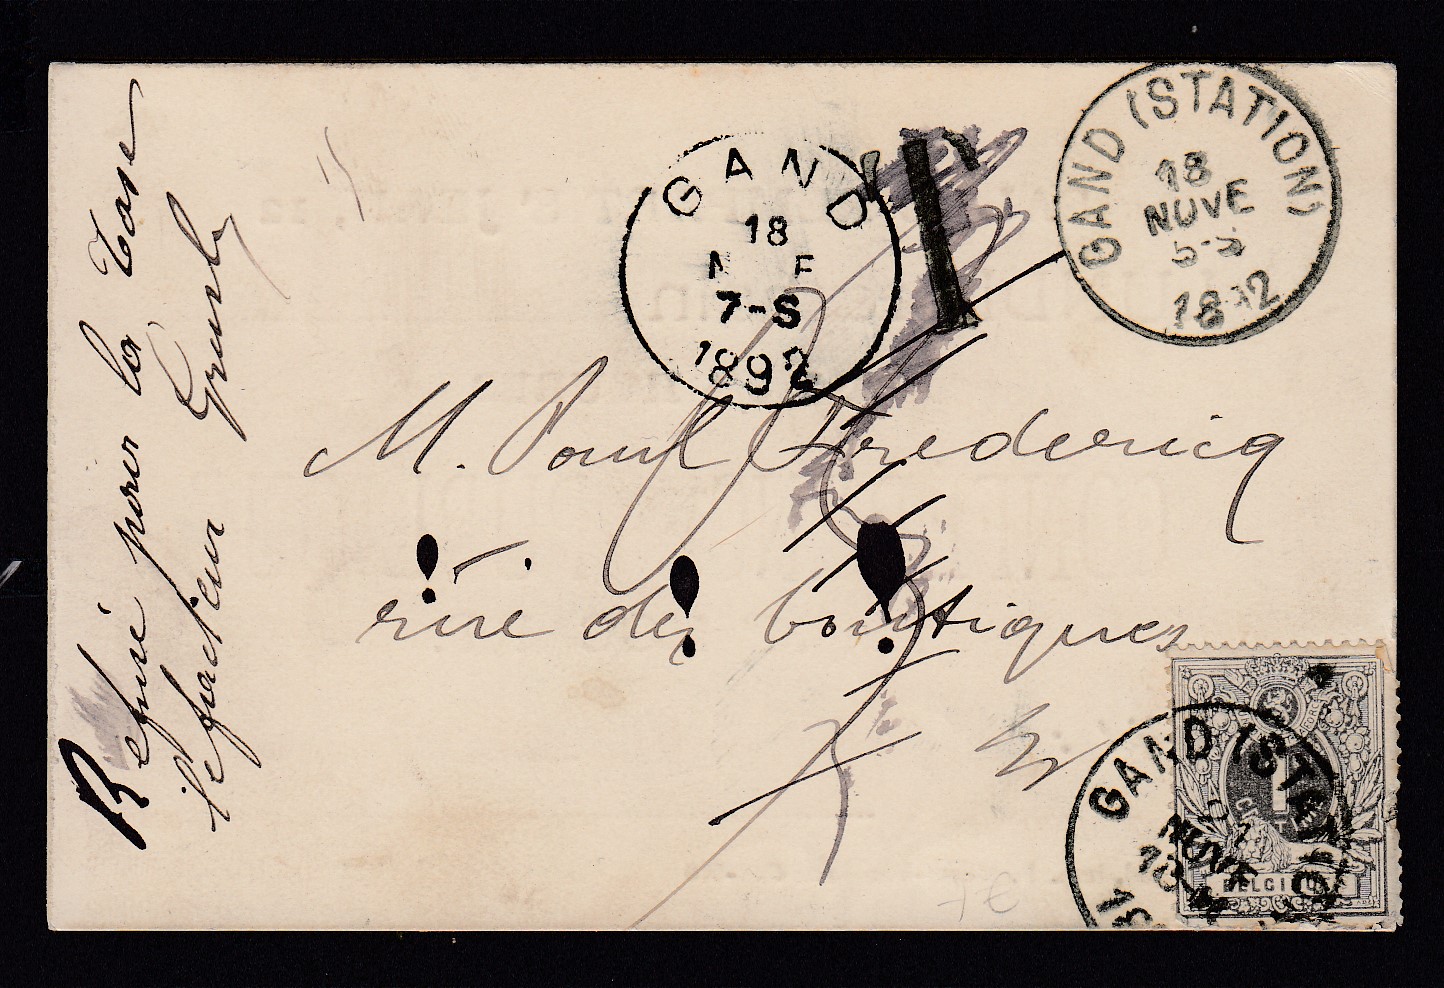 GAND
18
7-S
1892
T
GAND (STATION)
18
NOVE
5-S
1892
M. Paul Fredericq
rue des boutiques
Refusé pour la taxe
le facteur
GAND (STATION)
NOVE
10-M
1
BELGIQUE